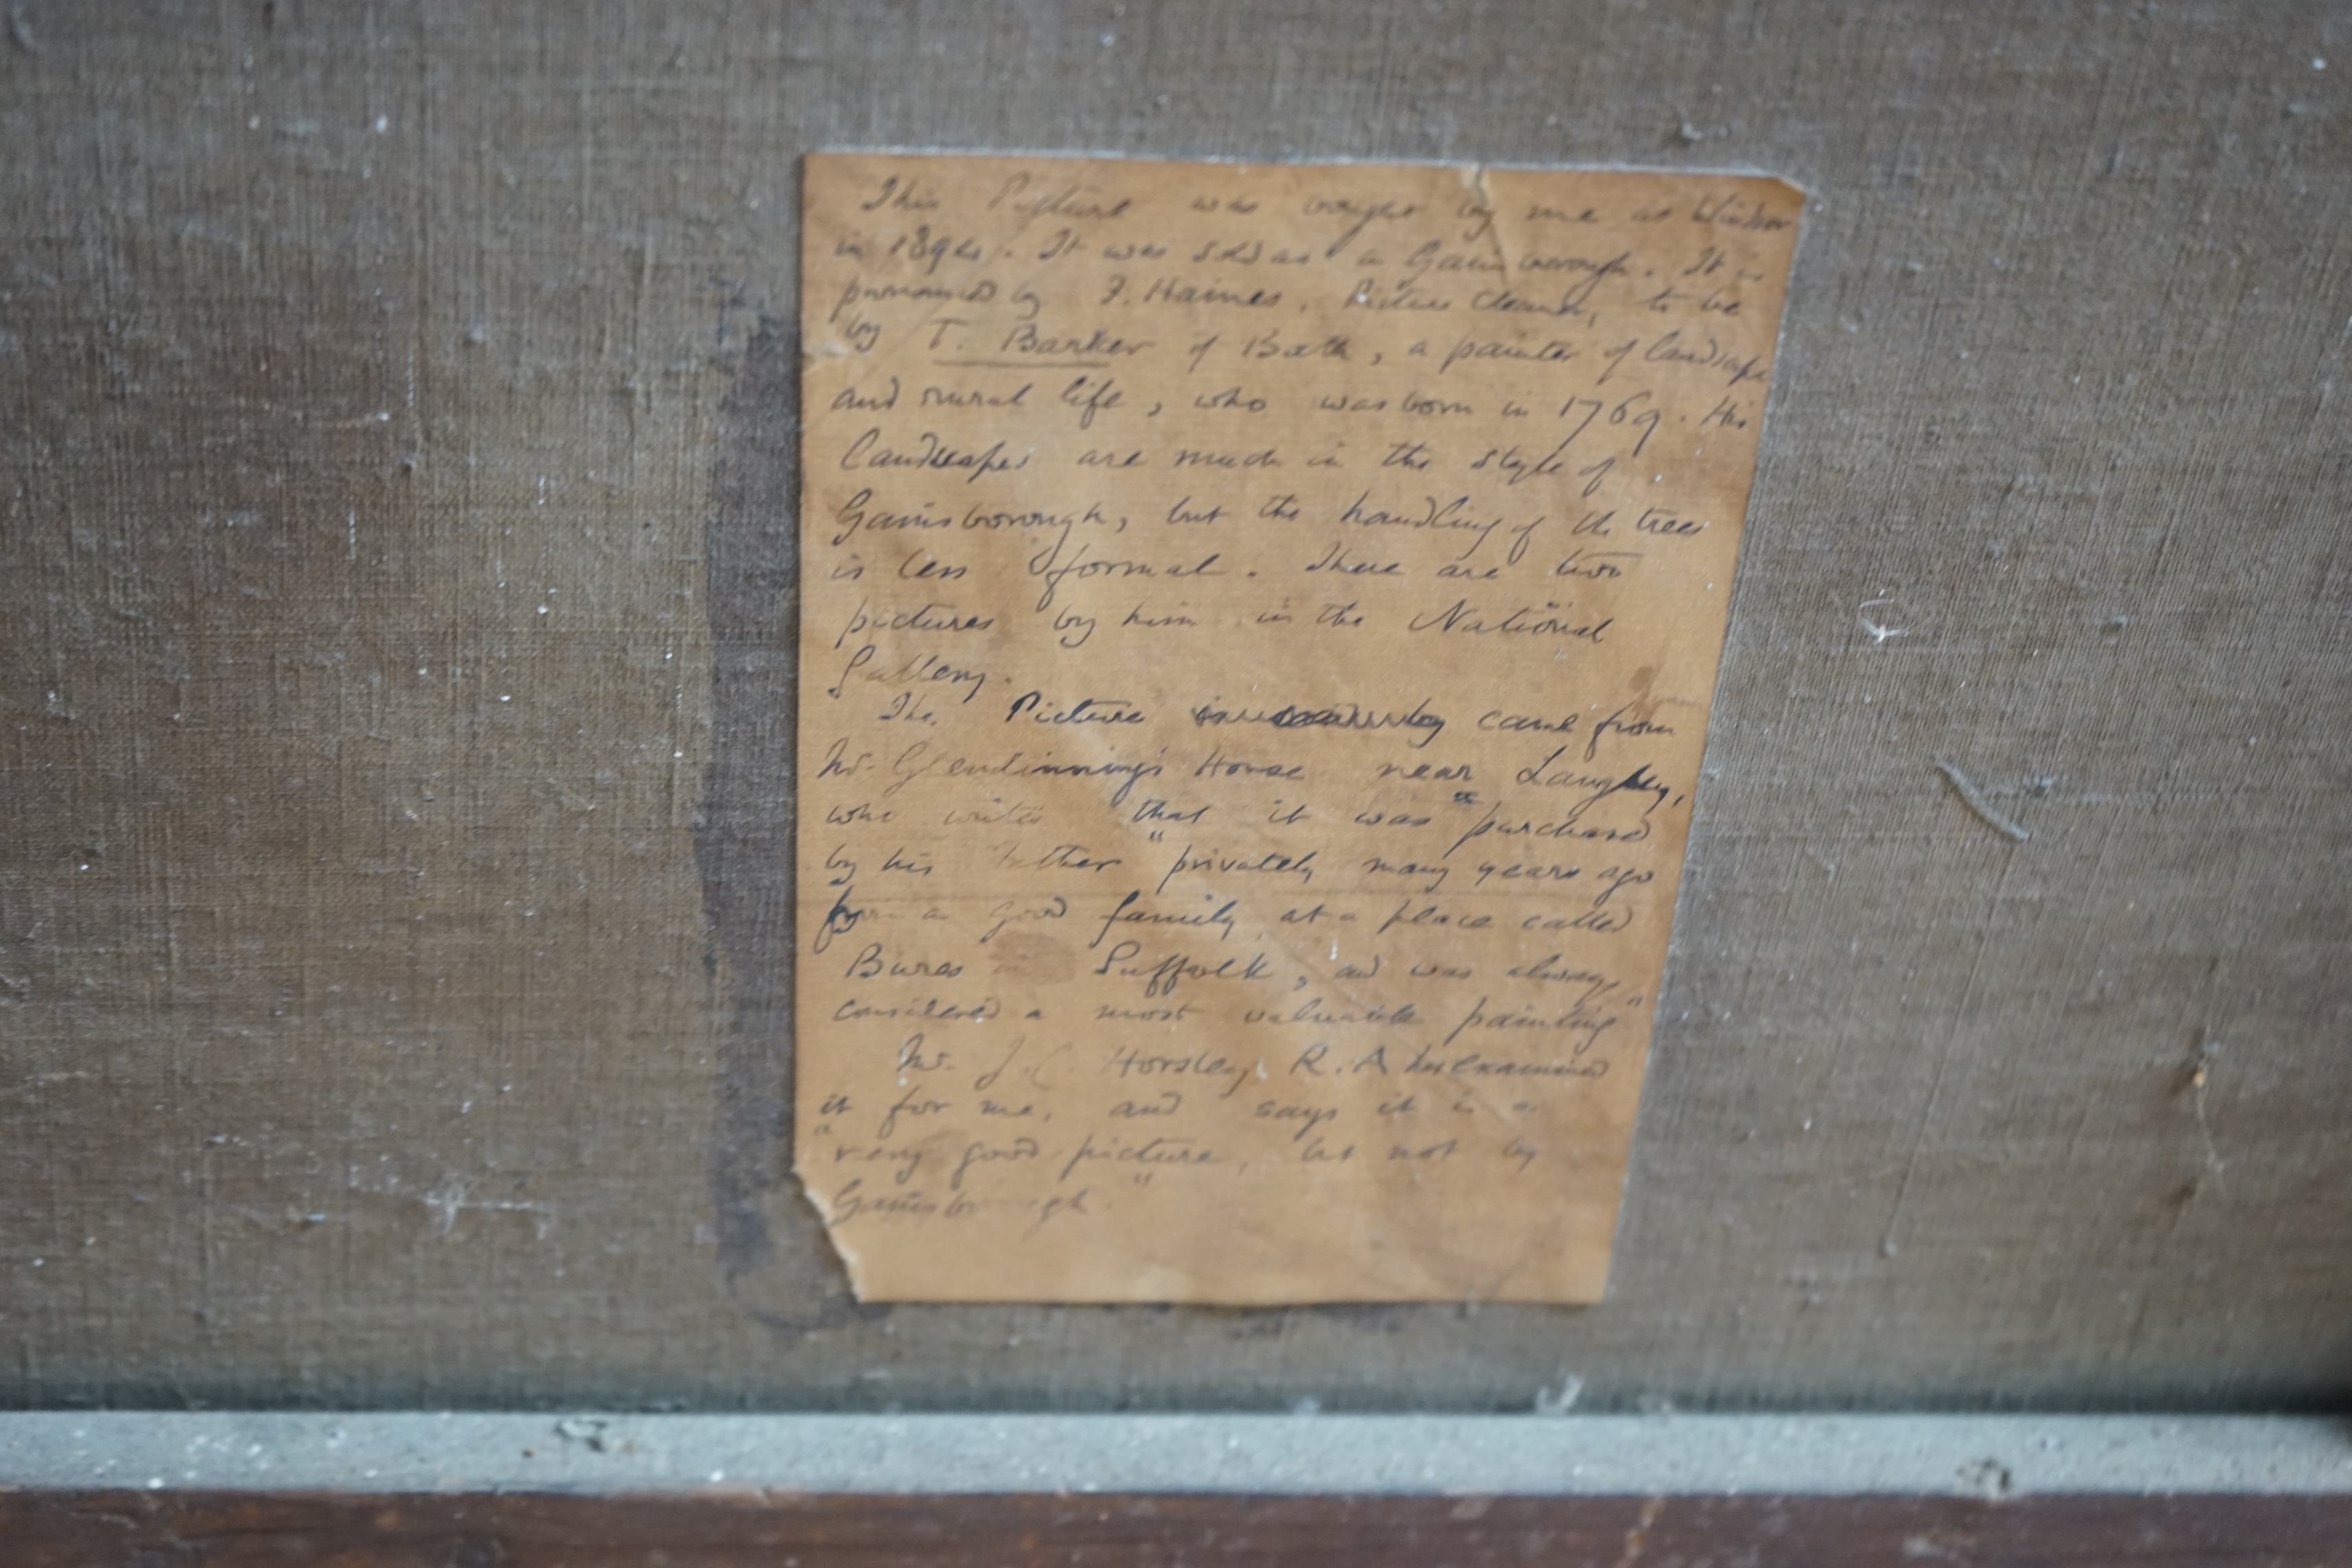 This Picture was bought by me at Windsor
in. It was sold as a Gainsborough. It is
pronounced by F. Haines, Picture Cleaner, to be
by T. Barker of Bath, a painter of landscape
and rural life, who was born in 1769. His
landscapes are much in the style of
Gainsborough, but the handling of the trees
is less formal. There are two
pictures by him in the National
Gallery.
The Picture came from
Mr. Glendinning's House near Langley,
who writes that it was purchased
by his father "privately many years ago
from a good family, at a place called
Bures in Suffolk, and was always
considered a most valuable painting"
Mr. J. C. Horsley R.A has examined
it for me, and says it is a
"very good picture, but not by
Gainsborough."